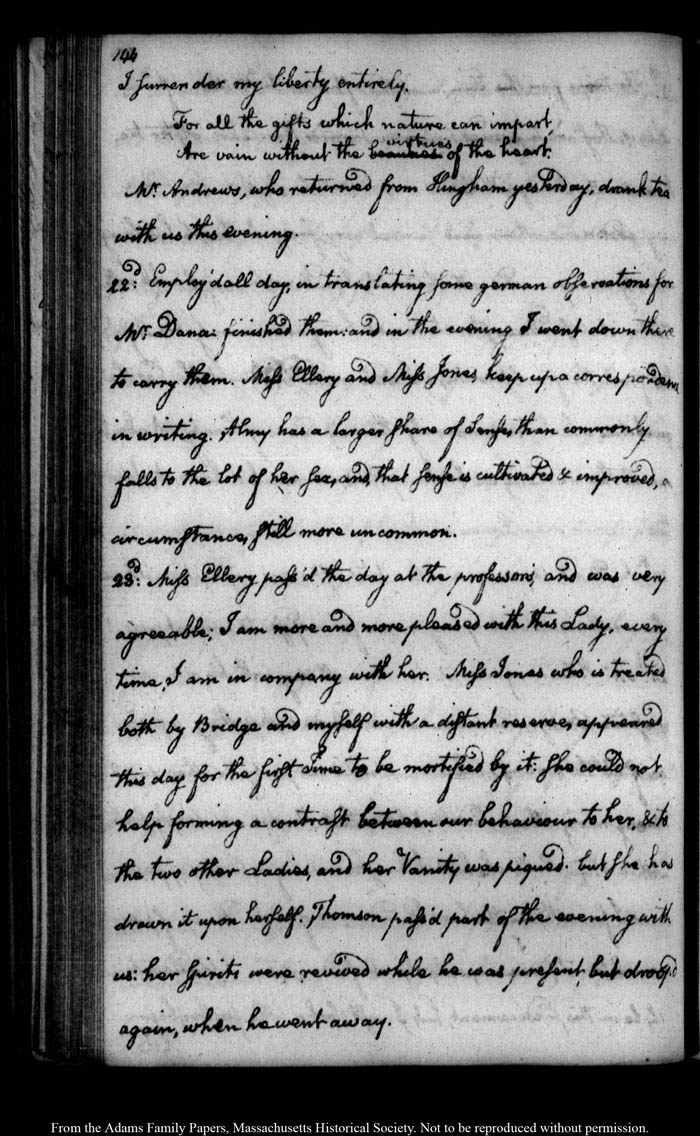 144
I surrender my liberty entirely.
For all the gifts which nature can impart,
virtues
Are vain without the beauties of the heart.
Mr. Andrews, who returned from Hingham yesterday, drank tea
with us this evening.
22d: Employ'd all day, in translating some german observations for
Mr. Dana: finished them: and in the evening I went down there
to carry them. Miss Ellery and Miss Jones, keep up a correspondence
in writing. Almy has a larger share of Sense, than commonly
falls to the lot of her sex, and, that sense is cultivated & improved, a
circumstance, still more uncommon.
23d: Miss Ellery pass'd the day at the professor's, and was very
agreeable; I am more and more pleased with this Lady, every
time, I am in company with her. Miss Jones who is treated
both by Bridge and myself with a distant reserve, appeared
this day for the first Time to be mortified by it: she could not
help forming a contrast between our behaviour to her, & to
the two other Ladies, and her Vanity was piqued. but she has
drawn it upon herself. Thomson pass'd part of the evening with
us: her Spirits were revived while he was present, but droop'd
again, when he went away.
From the Adams Family Papers, Massachusetts Historical Society. Not to be reproduced without permission.